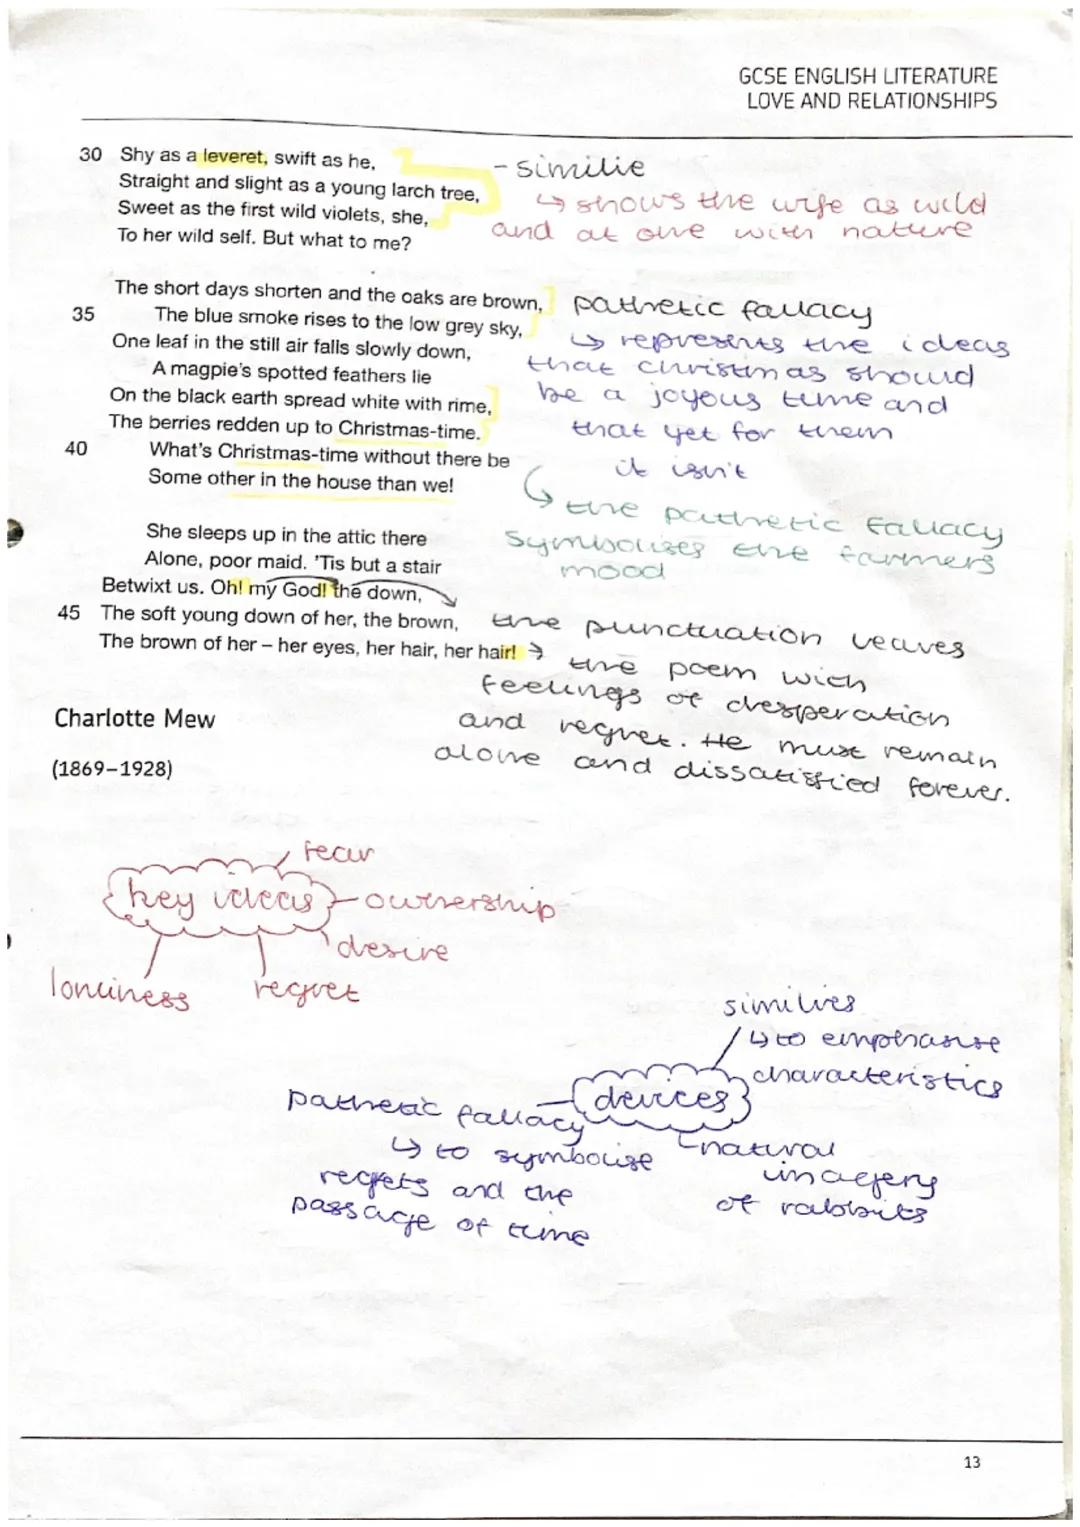 GCSE ENGLISH LITERATURE
LOVE AND RELATIONSHIPS
30 Shy as a leveret, swift as he,
Straight and slight as a young larch tree,
Sweet as the first wild violets, she,
To her wild self. But what to me?
- similie
↳ shows the wife as wild
and at one with nature
The short days shorten and the oaks are brown,
35 The blue smoke rises to the low grey sky,
One leaf in the still air falls slowly down,
A magpie's spotted feathers lie
On the black earth spread white with rime,
The berries redden up to Christmas-time.
40 What's Christmas-time without there be
Some other in the house than we!
pathetic fallacy
↳ represents the ideas
that christmas should
be a joyous time and
that yet for them
it isn't
↳ the pathetic fallacy
symbolises the farmers
mood
She sleeps up in the attic there
Alone, poor maid. 'Tis but a stair
Betwixt us. Oh! my God! the down,
45 The soft young down of her, the brown,
The brown of her – her eyes, her hair, her hair! →
the punctuation leaves
the poem with
feelings of desperation
and regret. He must remain
alone and dissatisfied forever.
Charlotte Mew
(1869–1928)
fear
key ideas
ownership
desire
lonliness
regret
similies
↳ to emphasise
characteristics
devices
pathetic fallacy
↳ to symbolise
regrets and the
passage of time
natural
imagery
of rabbits
13